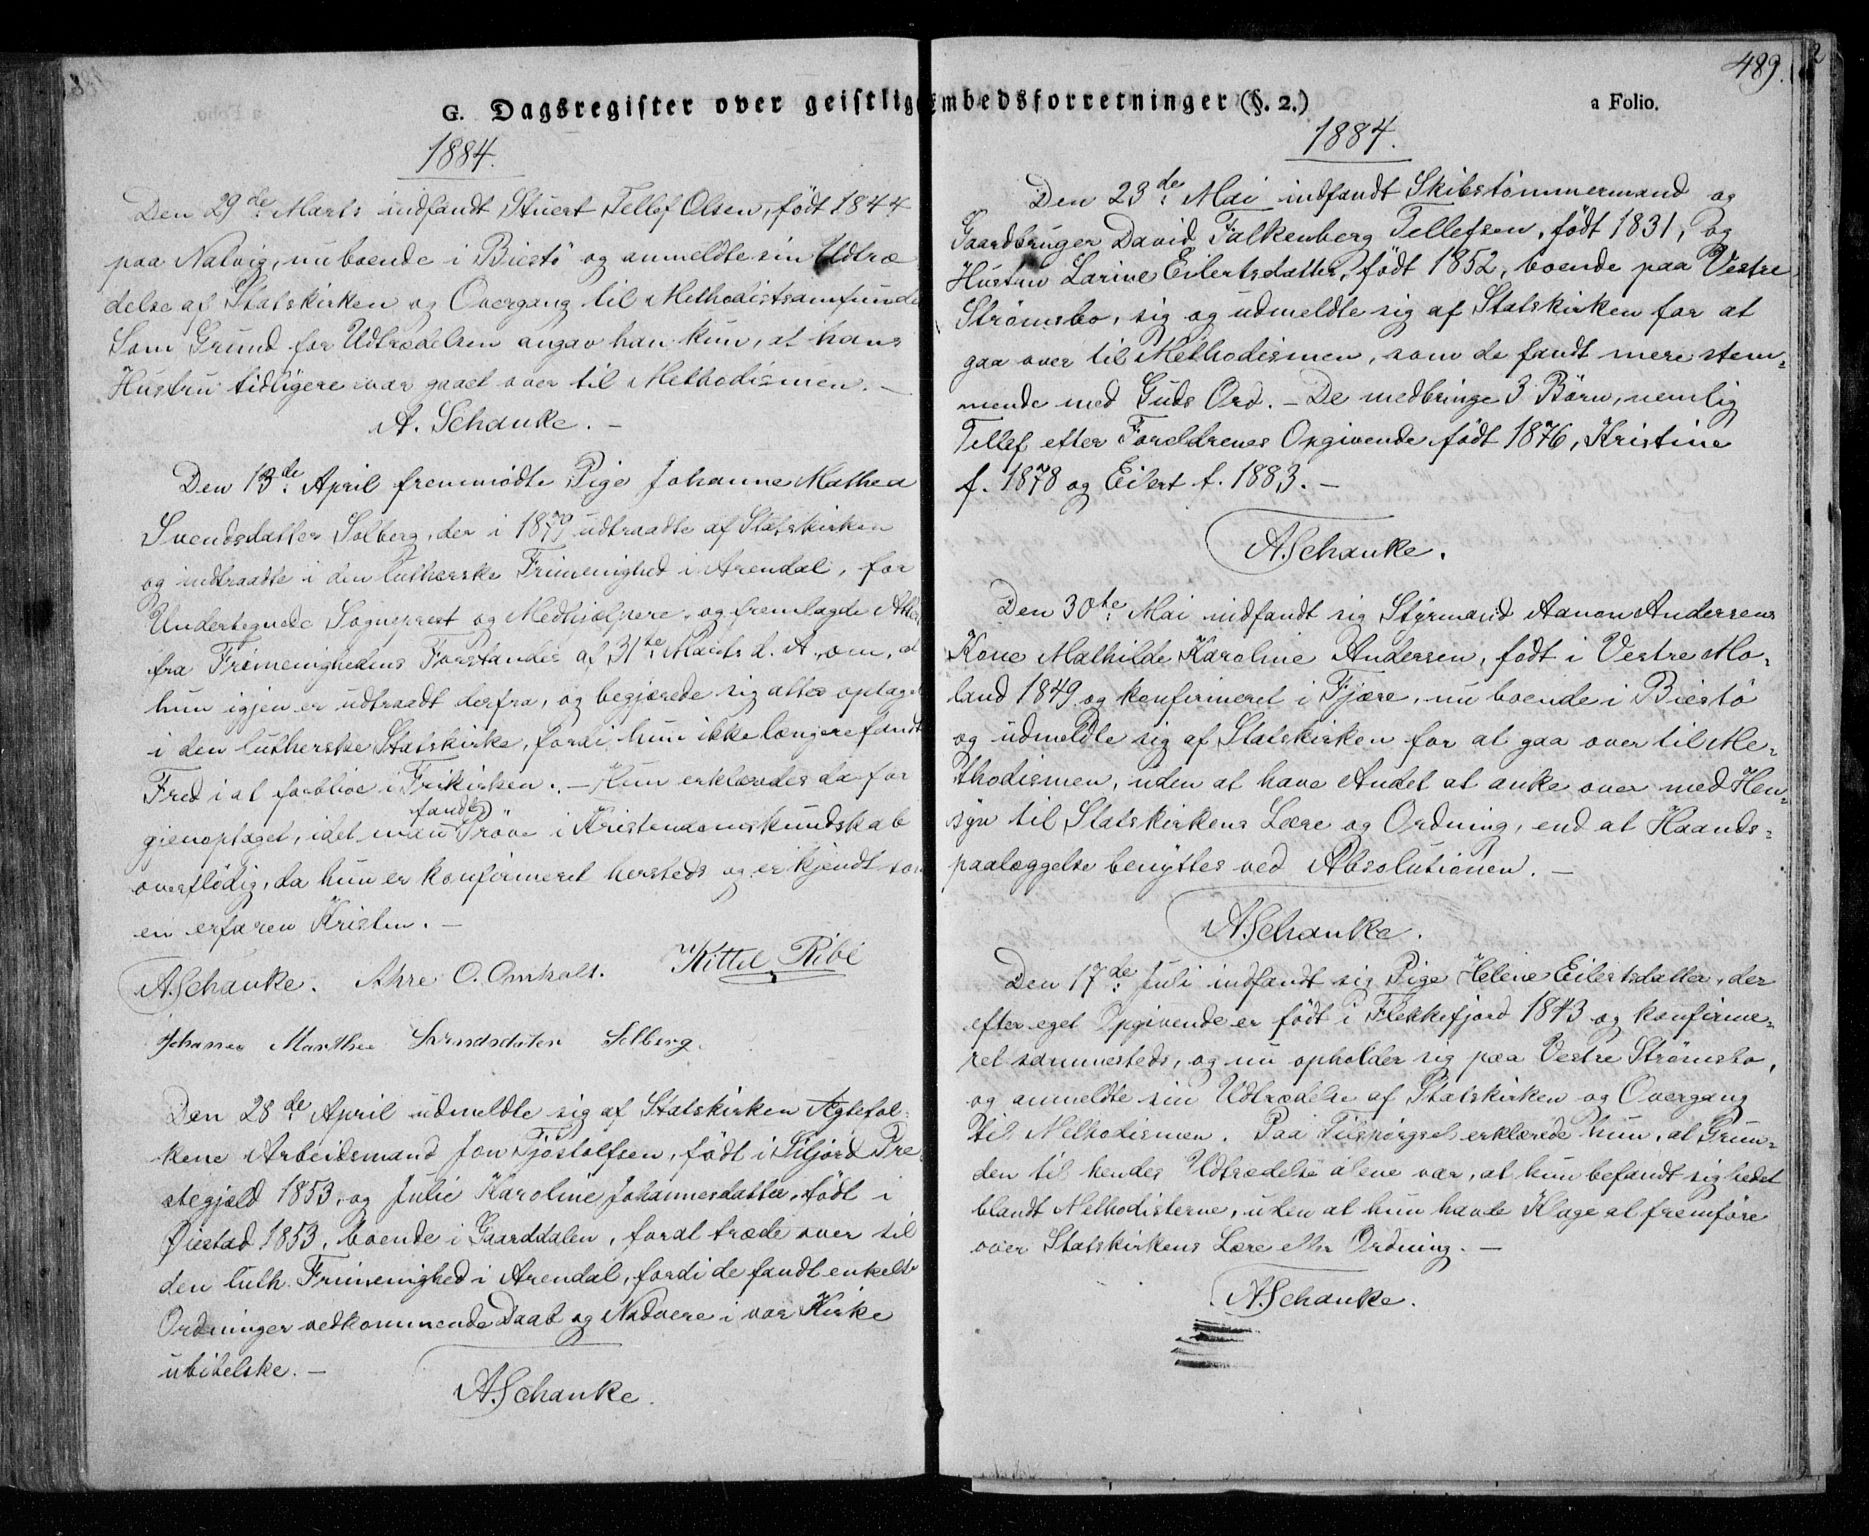 G. Dagsregister over geistlig
1884.
Den 29de Marts indfandt Stuert Tellef Olsen, født 1844
paa Natvig, nu boende i Biestö og anmeldte sin Udtræ
delse af Statskirken og Overgang til Methodistsamfunde
Som Grund for Udtrædelsen angav han kun, at hans
Hustru tidligere var gaaet over til Methodismen. –
A. Schanke. –
Den 13de April fremmødte Pige Johanne Mathea
Svendsdatter Solberg, der i 1879 udtraadte af Statskirken
og indtraadte i den lutherske Frimenighed i Arendal, for
Undertegnede Sogneprest og Medhjælpere, og fremlagde Atte
fra Frimenighedens Forstander af 31te Marts d. A. om, at
hun igjen er udtraadt derfra, og begjærede sig atter optaget
i den lutherske Statskirke, fordi hun ikke længere fandt
Fred i at forblive i Frikirken. – Hun erklæredes da for
gjenoptaget, idet man fandt Pröve i Kristendomskundskab
overflödig, da hun er konfirmeret hersteds og er kjendt som
en erfaren Kristen. –
A. Schanke. Ahre O. Omholt. Kittil Ribe
Johanne Marthea Svendsdater Solberg.
Den 28de April udmeldte sig af Statskirken Ægtefol-
kene Arbeidsmand Jon Tjöstolfsen, født i Siljord Pre-
stegjeld 1853, og Julie Karoline Johannesdatter, født i
Øiestad 1853, boende i Gaarddalen, forat træde over til
den luth. Frimenighed i Arendal, fordi de fandt enkelte
Ordninger vedkommende Daab og Nadvere i vor Kirke
ubibelske. –
A. Schanke.
489.
Embedsforretninger (§. 2.) a Folio.
1884.
Den 23de Mai indfandt Skibstømmermand og
Gaardbruger David Falkenberg Tellefsen, født 1831, og
Hustru Larine Eilertsdatter, født 1852, boende paa Vestre
Strømsbo, sig og udmeldte sig af Statskirken for at
gaa over til Methodismen, som de fandt mere stem-
mende med Guds Ord. – De medbringe 3 Börn, nemlig
Tellef efter Forældrenes Opgivende født 1876, Kristine
f. 1878 og Eilert f. 1883. –
A. Schanke.
Den 30te Mai indfandt sig Styrmand Aanon Andersens
Kone Mathilde Karoline Andersen, født i Vestre Mo-
land 1849 og konfirmeret i Fjære, nu boende i Biestö
og udmeldte sig af Statskirken for at gaa over til Me-
thodismen, uden at have Andet at anke over med Hen-
syn til Statskirkens Lære og Ordning, end at Haands-
paalæggelse benyttes ved Absolutionen. –
A. Schanke.
Den 17de Juli indfandt sig Pige Helene Eilertsdatter, der
efter eget Opgivende er født i Flekkefjord 1843 og konfirme-
ret sammesteds, og nu opholder sig paa Vestre Strömsbo,
og anmeldte sin Udtrædelse af Statskirken og Overgang
til Methodismen. Paa Tilspørgsel erklærede hun, at Grun-
den til hendes Udtrædelse alene var, at hun befandt sig bedst
blandt Methodisterne, uden at hun havde Klage at fremføre
over Statskirkens Lære eller Ordning. –
A. Schanke.